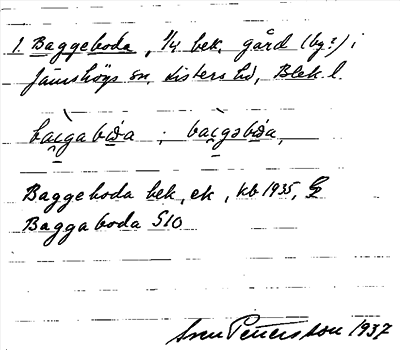 1. Baggeboda, 1/4 bek. gård (by?) i
Jämshögs sn, Listers hd, Blek. l.
bai̯gabo̤a ; bai̯gəbo̤a,
Baggeboda bek, ek, kb 1935, G
Baggaboda S10
Sven Petersson 1937